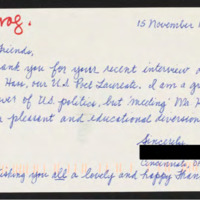 15 November
riends,
ank you for your recent interview
Hass, our U.S. Poet Laureate. I am a gr
ver of U.S. politics, but "meeting" Mr. H
a pleasant and educational diversion
Sincerely
Cincinnati, OH
ishing you all a lovely and happy Than